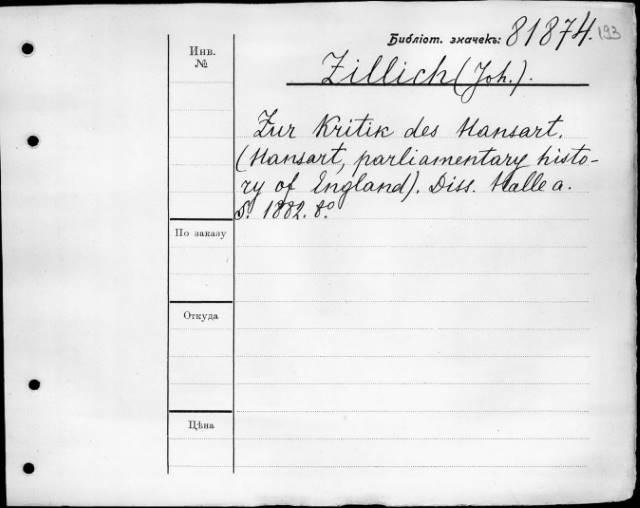 Библіот. значекъ: 81874. 193
Инв.
№
Zillich (Joh.).
Zur Kritik des Hansart.
(Hansart, parliamentary histo-
ry of England). Diss. Halle a.
S. 1882. 8.º
По заказу
Откуда
Цѣна